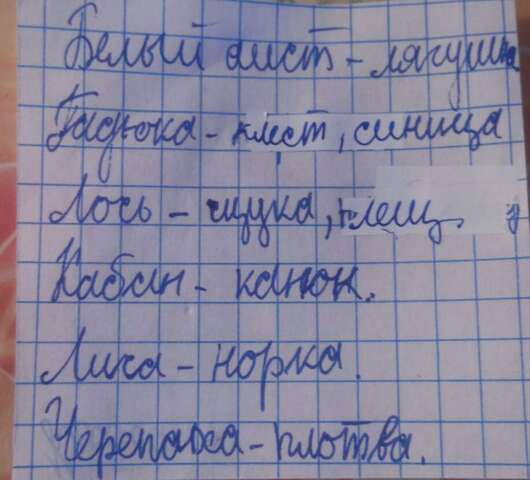 Белый аист - лягушка
Гадюка - клест, синица
Лось - щука, клещ.
Кабан - канюк.
Лиса - норка.
Черепаха - плотва.